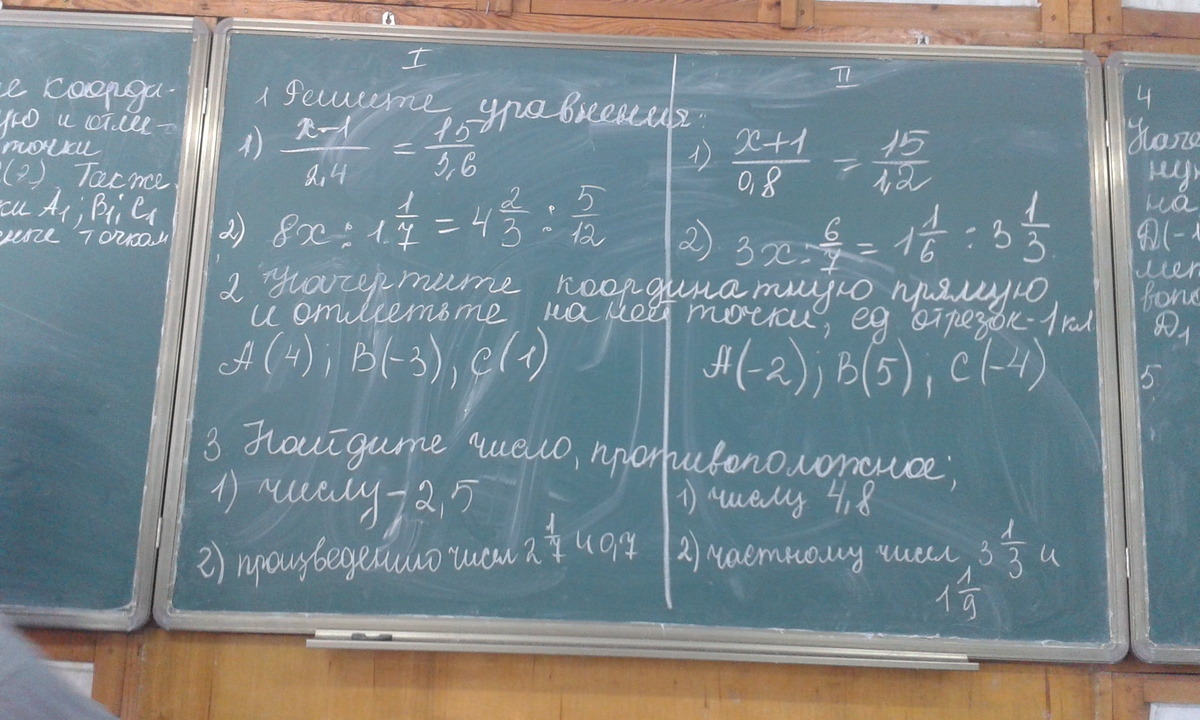 е коорди-
ую и отме-
точки
Также
ки A₁; B₁; C₁
точкам
I
1 Решите уравнения:
1) x-1/2,4 = 15/3,6
2) 8x : 1 1/7 = 4 2/3 : 5/12
II
1) x+1/0,8 = 15/1,2
2) 3x : 6/7 = 1 1/6 : 3 1/3
2 Начертите координатную прямую
и отметьте на ней точки, ед отрезок-1кл
A(4); B(-3), C(1)
A(-2); B(5), C(-4)
3 Найдите число, противоположное;
1) числу -2,5
2) произведению чисел 2 1/7 и 0,7
1) числу 4,8
2) частному чисел 3 1/3 и
1 1/9
4
Наче
ну
на
D(-1
мет
D₁
5